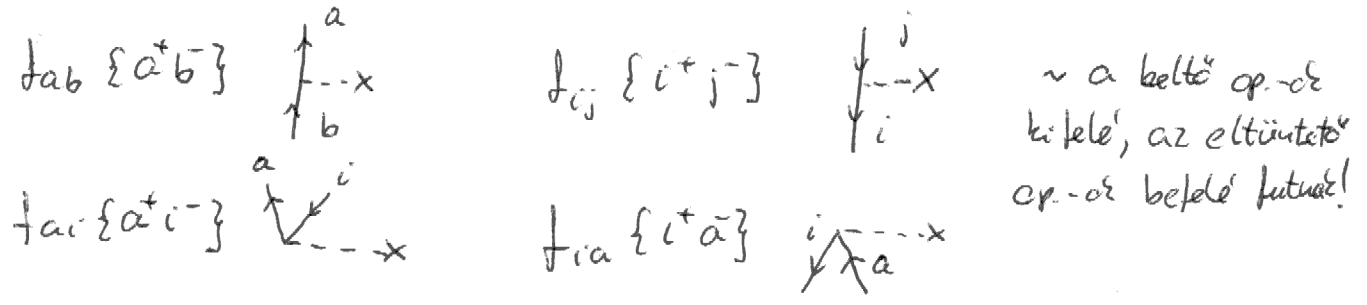 f_ab {a⁺b⁻} a b x
f_ij {i⁺j⁻} j i x
~ a keltő op.-ok
kifelé, az eltüntető
op.-ok befelé futnak!
f_ai {a⁺i⁻} a i x
f_ia {i⁺a⁻} i a x